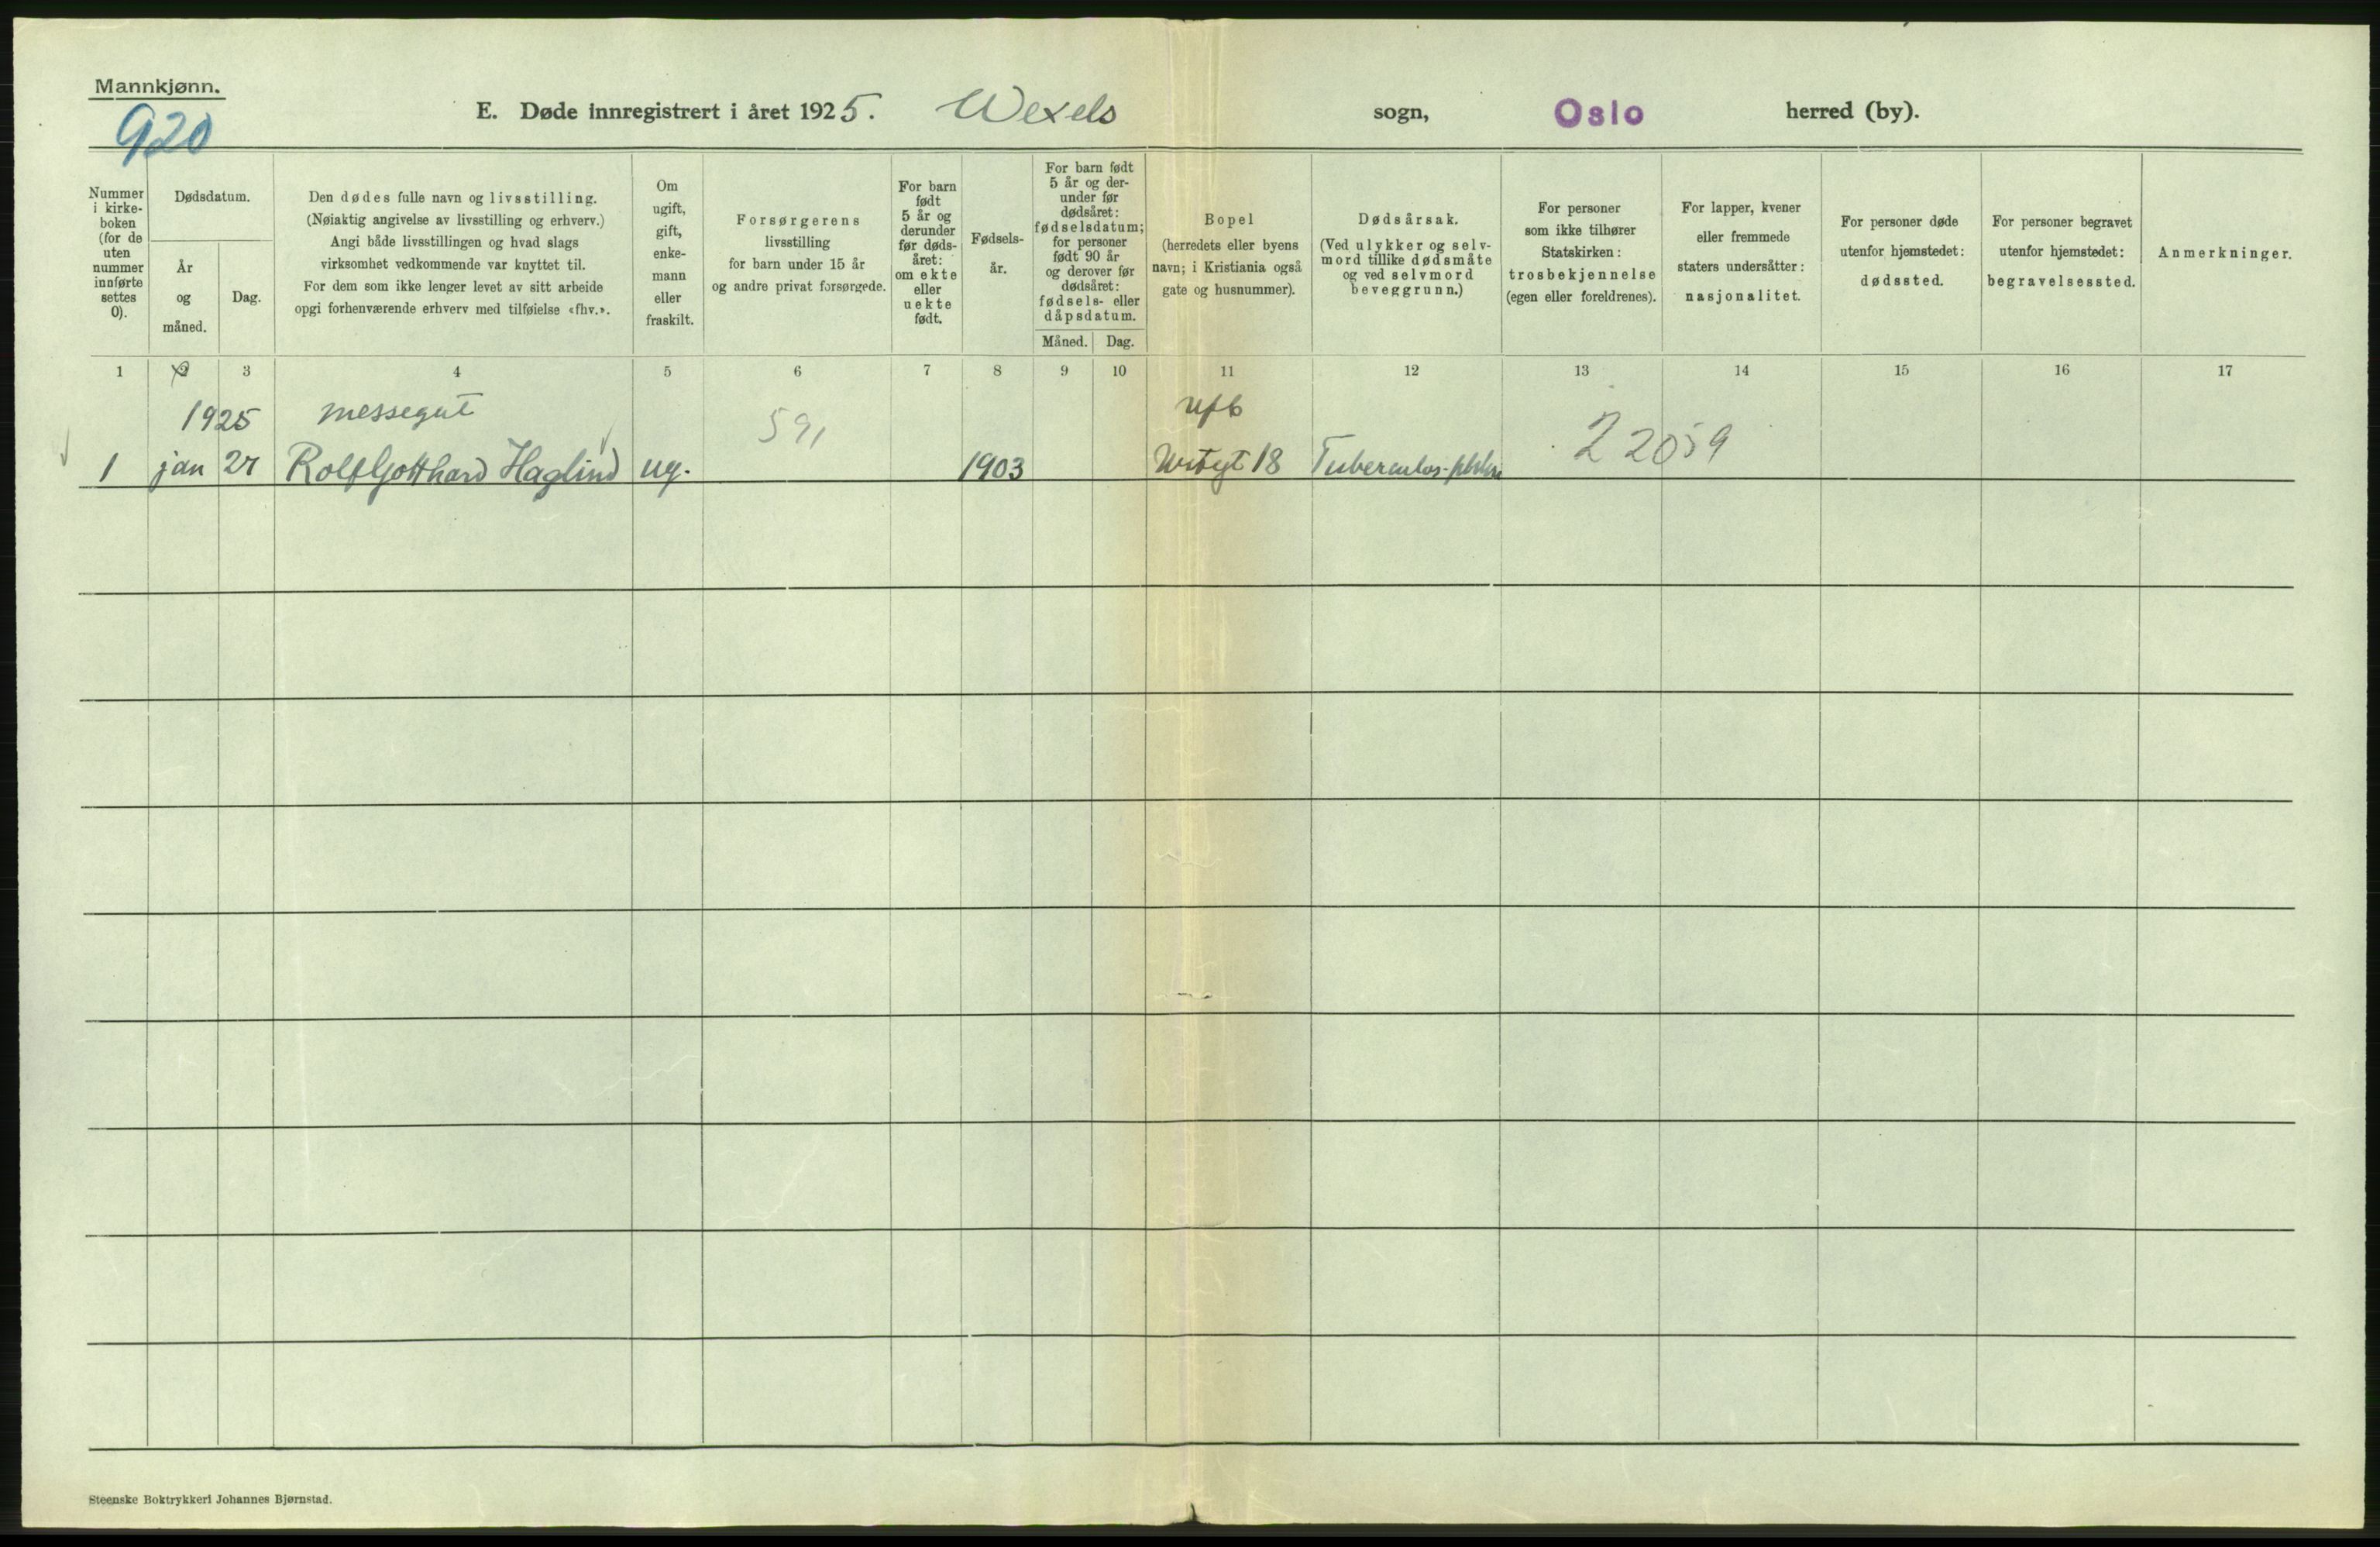 Mannkjønn.
920
E. Døde innregistrert i året 1925. Wexels sogn, Oslo herred (by).
Nummer i kirke-
boken
(for de
uten
nummer
innførte
settes
0).
Dødsdatum.
År
og
måned.
Dag.
Den dødes fulle navn og livsstilling.
(Nøiaktig angivelse av livsstilling og erhverv.)
Angi både livsstillingen og hvad slags
virksomhet vedkommende var knyttet til.
For dem som ikke lenger levet av sitt arbeide
opgi forhenværende erhverv med tilføielse «fhv.».
Om
ugift,
gift,
enke-
mann
eller
fraskilt.
Forsørgerens
livsstilling
for barn under 15 år
og andre privat forsørgede.
For barn
født
5 år og
derunder
før døds-
året:
om ekte
eller
uekte
født.
Fødsels-
år.
For barn født
5 år og der-
under før
dødsåret:
fødselsdatum;
for personer
født 90 år
og derover før
dødsåret:
fødsels- eller
dåpsdatum.
Måned. Dag.
Bopel
(herredets eller byens
navn; i Kristiania også
gate og husnummer).
Dødsårsak.
(Ved ulykker og selv-
mord tillike dødsmåte
og ved selvmord
beveggrunn.)
For personer
som ikke tilhører
Statskirken:
trosbekjennelse
(egen eller foreldrenes).
For lapper, kvener
eller fremmede
staters undersåtter:
nasjonalitet.
For personer døde
utenfor hjemstedet:
dødssted.
For personer begravet
utenfor hjemstedet:
begravelsessted.
Anmerkninger.
1 2 3 4 5 6 7 8 9 10 11 12 13 14 15 16 17
1925 messegut 591 22059
1 jan 27 Rolf Gotthard Haglind ug. 1903 18
Steenske Boktrykkeri Johannes Bjørnstad.